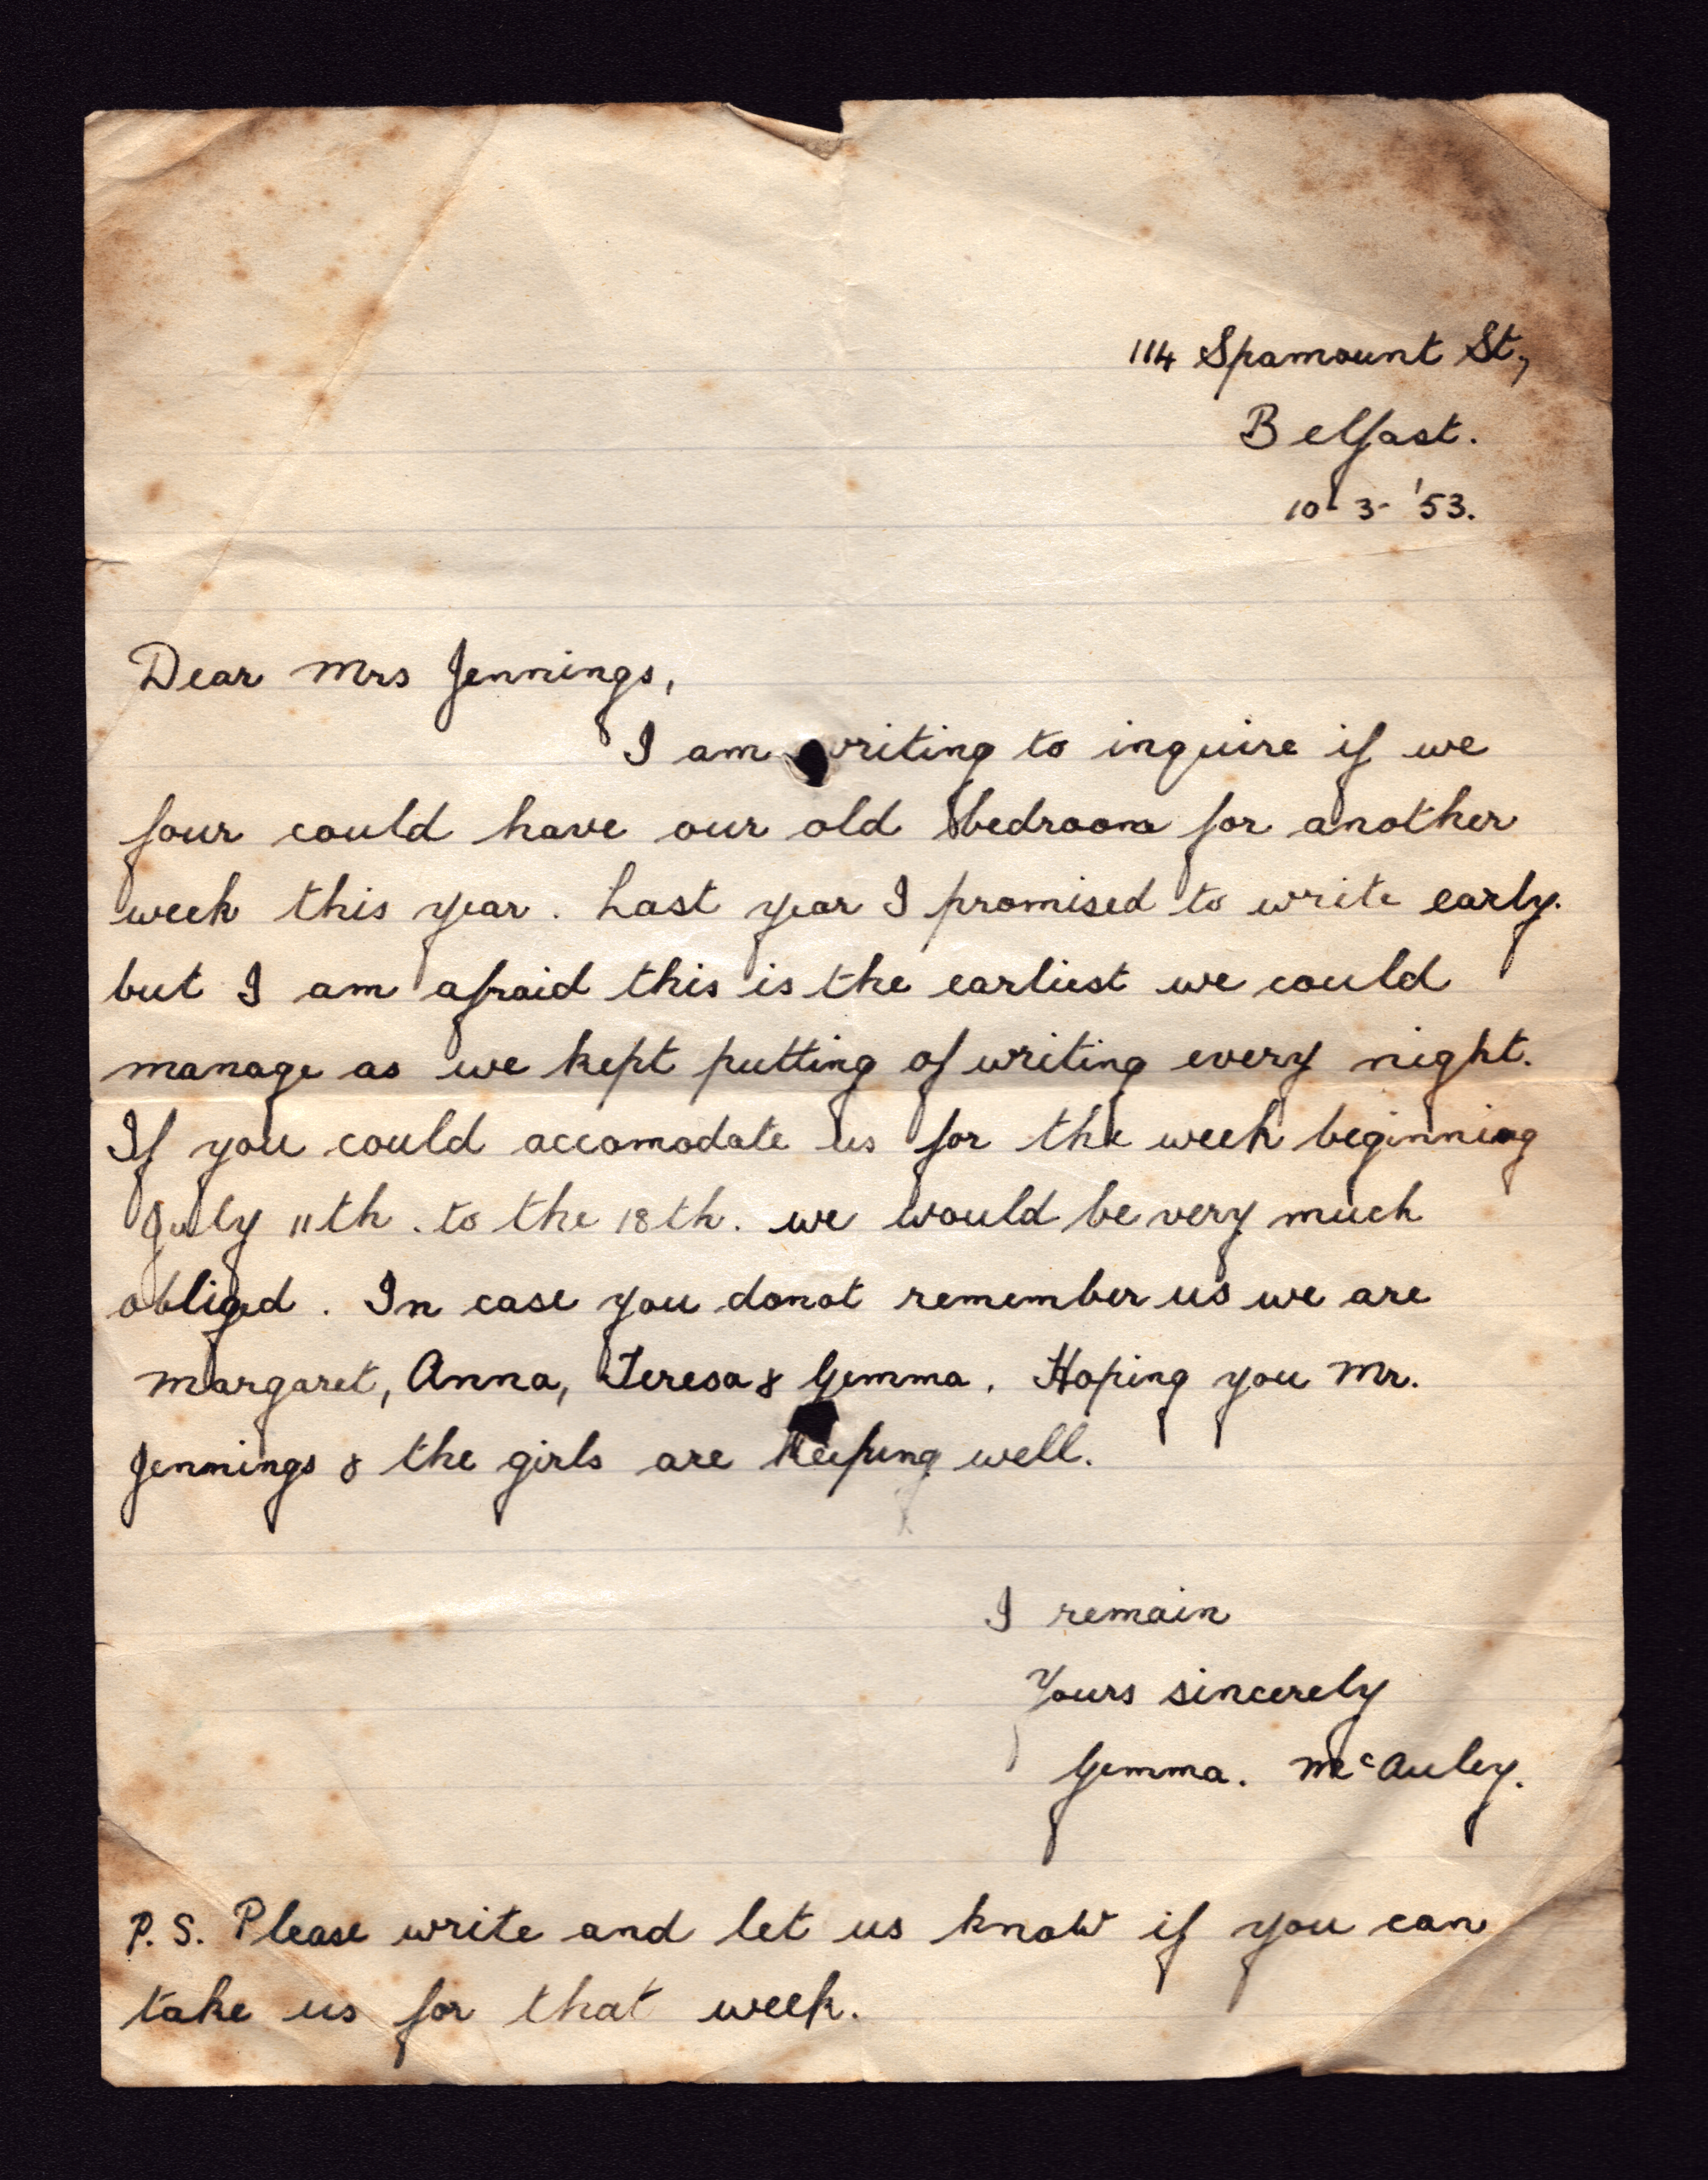 114 Spamount St,
Belfast.
10-3-'53.
Dear Mrs Jennings,
I am writing to inquire if we
four could have our old bedroom for another
week this year. Last year I promised to write early.
but I am afraid this is the earliest we could
manage as we kept putting of writing every night.
If you could accomodate us for the week beginning
July 11th. to the 18th. we would be very much
obliged. In case you donot remember us we are
Margaret, Anna, Teresa & Gemma. Hoping you Mr.
Jennings & the girls are keeping well.
I remain
Yours sincerely
Gemma. McAuley.
P.S. Please write and let us know if you can
take us for that week.